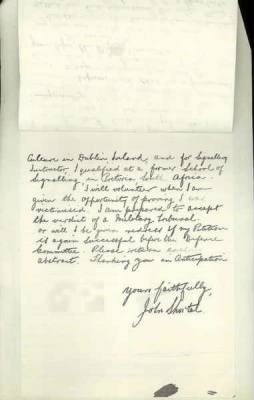 in Dublin Ireland, and for Signalling
Instructor, I qualified at a former School of
Signalling in Pretoria South Africa.
I will volunteer when I am
given the opportunity of proving I was
victimised. I am prepared to accept
the verdict of a Military Tribunal
or will I be given redress if my Petition
is again successful before the Defence
Committee. Please return
abstracts. Thanking you in Anticipation
Yours faithfully,
John